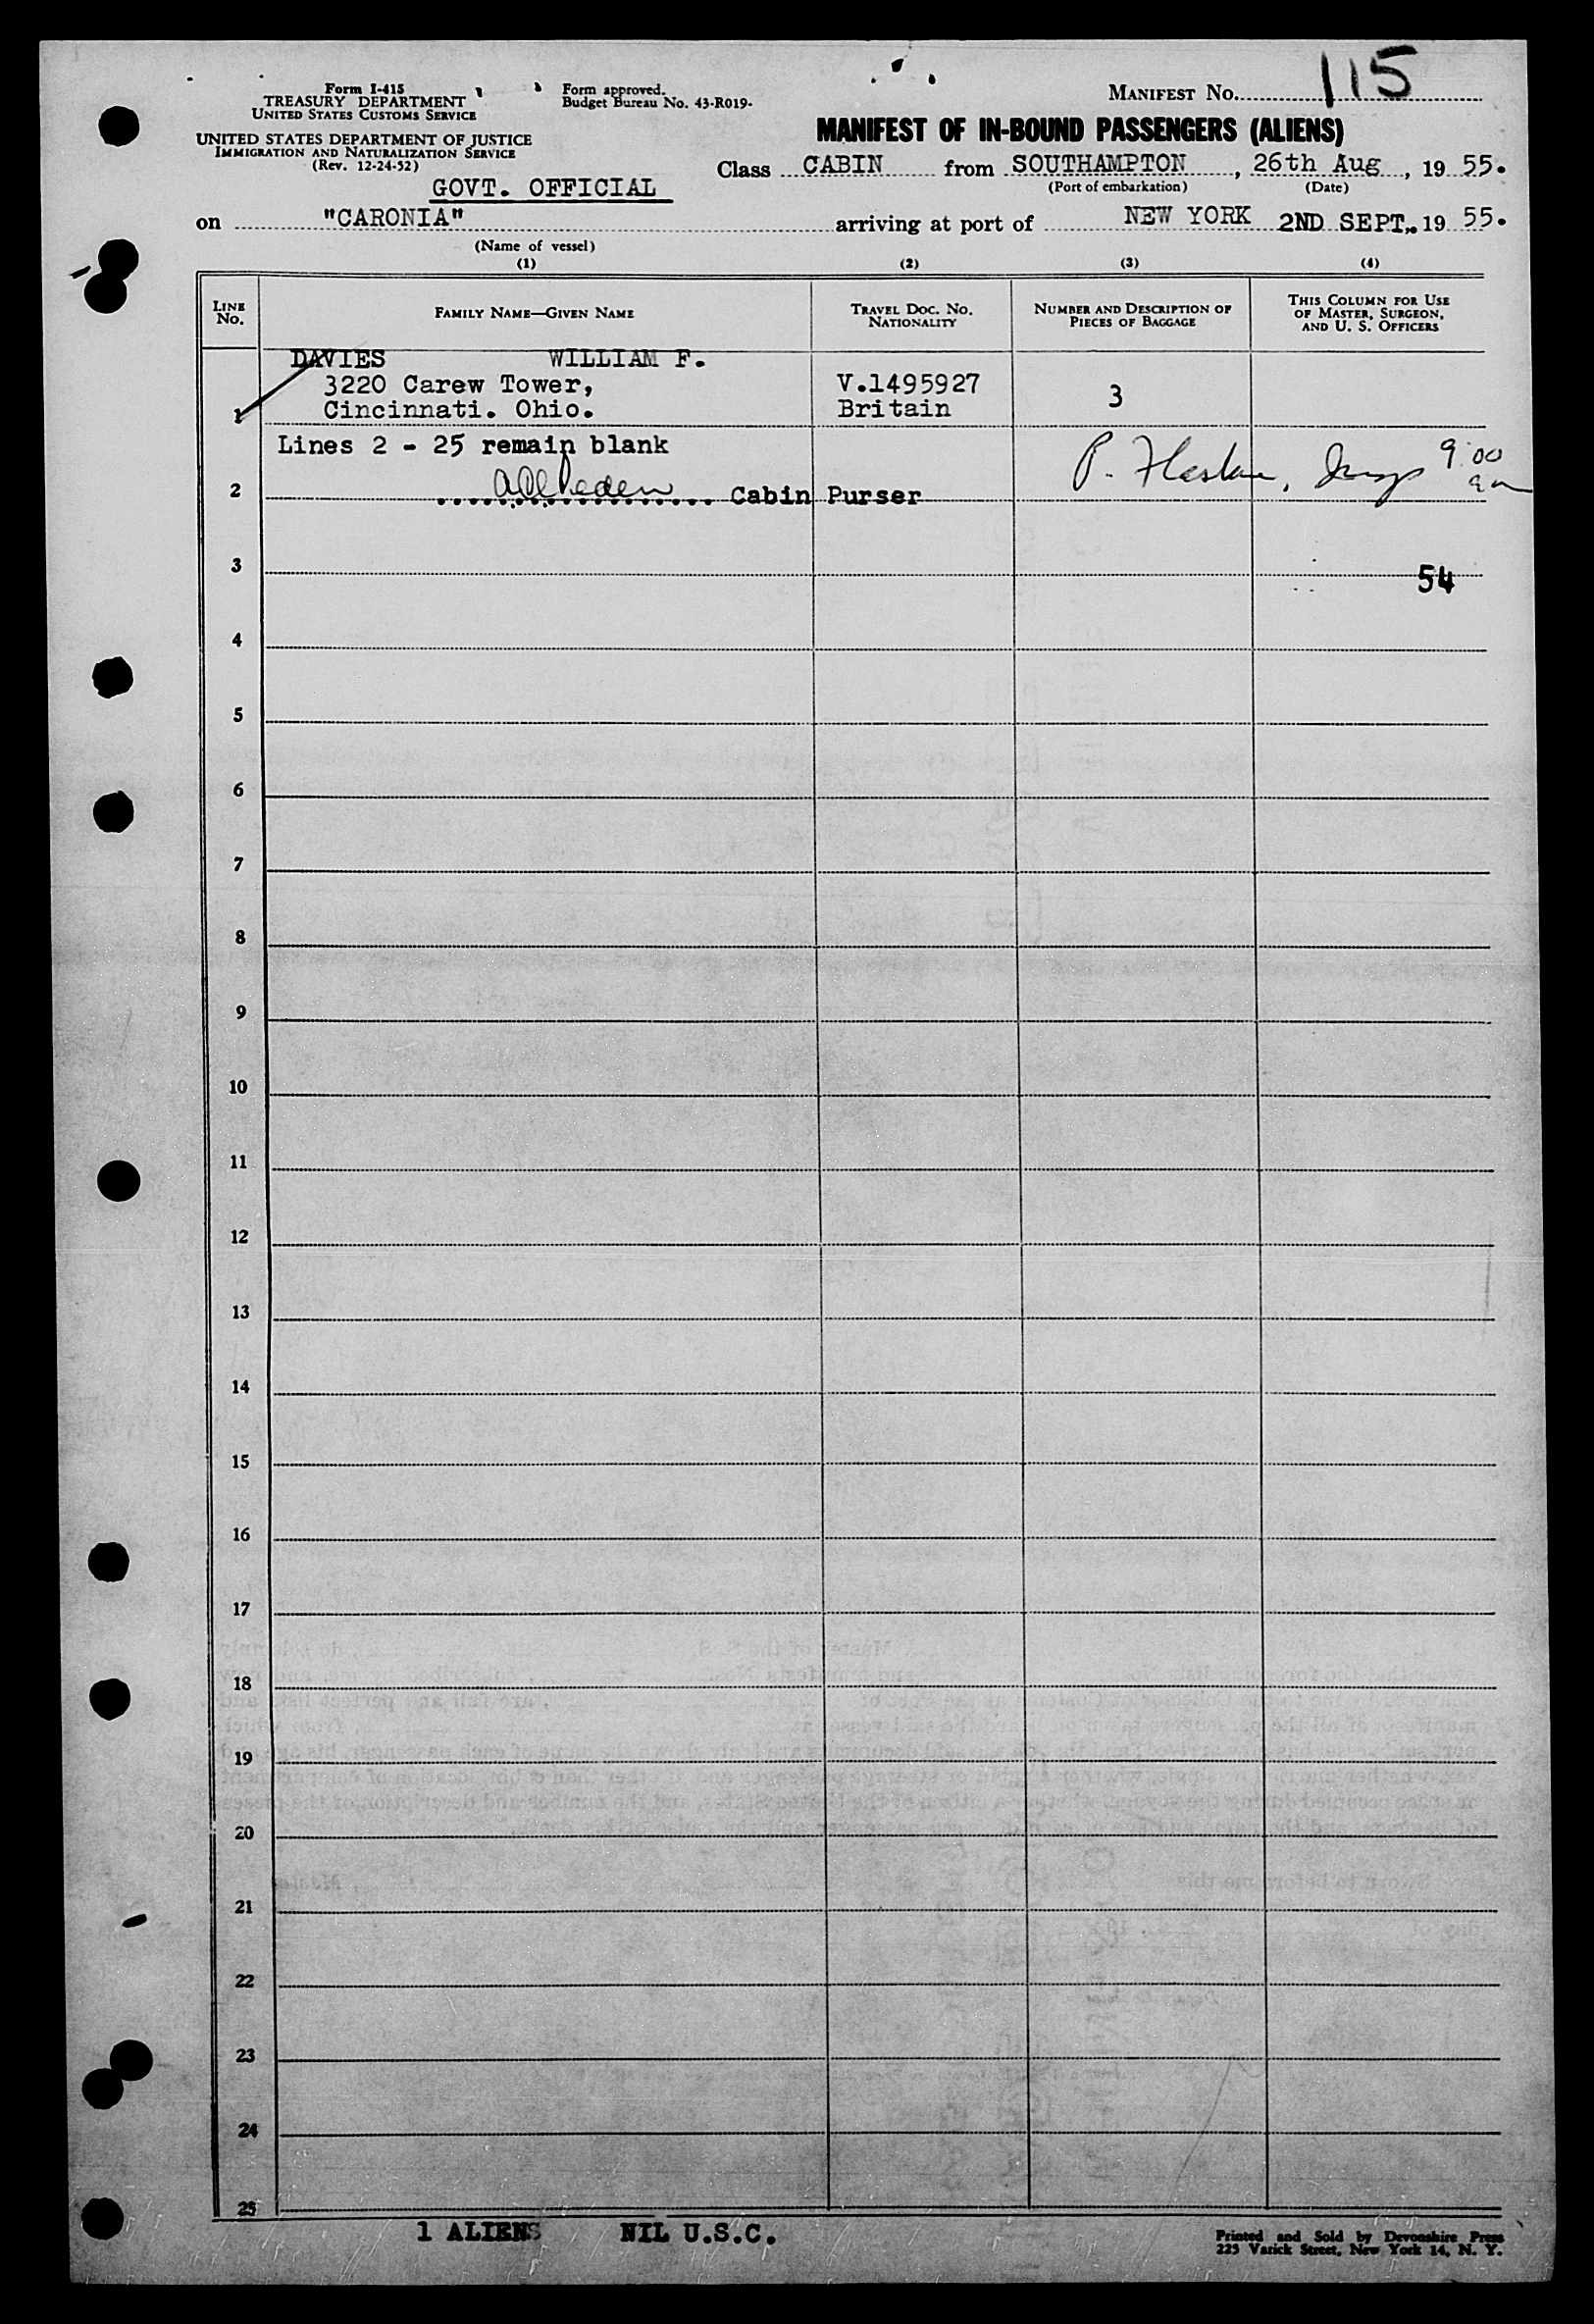 Form I-415
TREASURY DEPARTMENT
UNITED STATES CUSTOMS SERVICE
UNITED STATES DEPARTMENT OF JUSTICE
IMMIGRATION AND NATURALIZATION SERVICE
(Rev. 12-24-52)
Form approved.
Budget Bureau No. 43-R019.
MANIFEST No. 115
MANIFEST OF IN-BOUND PASSENGERS (ALIENS)
Class CABIN from SOUTHAMPTON, 26th Aug, 19 55.
(Port of embarkation) (Date)
GOVT. OFFICIAL
on "CARONIA" arriving at port of NEW YORK 2ND SEPT. 19 55.
(Name of vessel)
(1) (2) (3) (4)
LINE No.
FAMILY NAME—GIVEN NAME
TRAVEL DOC. NO. NATIONALITY
NUMBER AND DESCRIPTION OF PIECES OF BAGGAGE
THIS COLUMN FOR USE OF MASTER, SURGEON, AND U. S. OFFICERS
DAVIES WILLIAM F.
3220 Carew Tower, V.1495927 3
1 Cincinnati. Ohio. Britain
Lines 2 - 25 remain blank
9:00
2 Cabin Purser
3
54
4
5
6
7
8
9
10
11
12
13
14
15
16
17
18
19
20
21
22
23
24
25
1 ALIENS NIL U.S.C.
Printed and Sold by Devonshire Press
225 Varick Street, New York 14, N. Y.